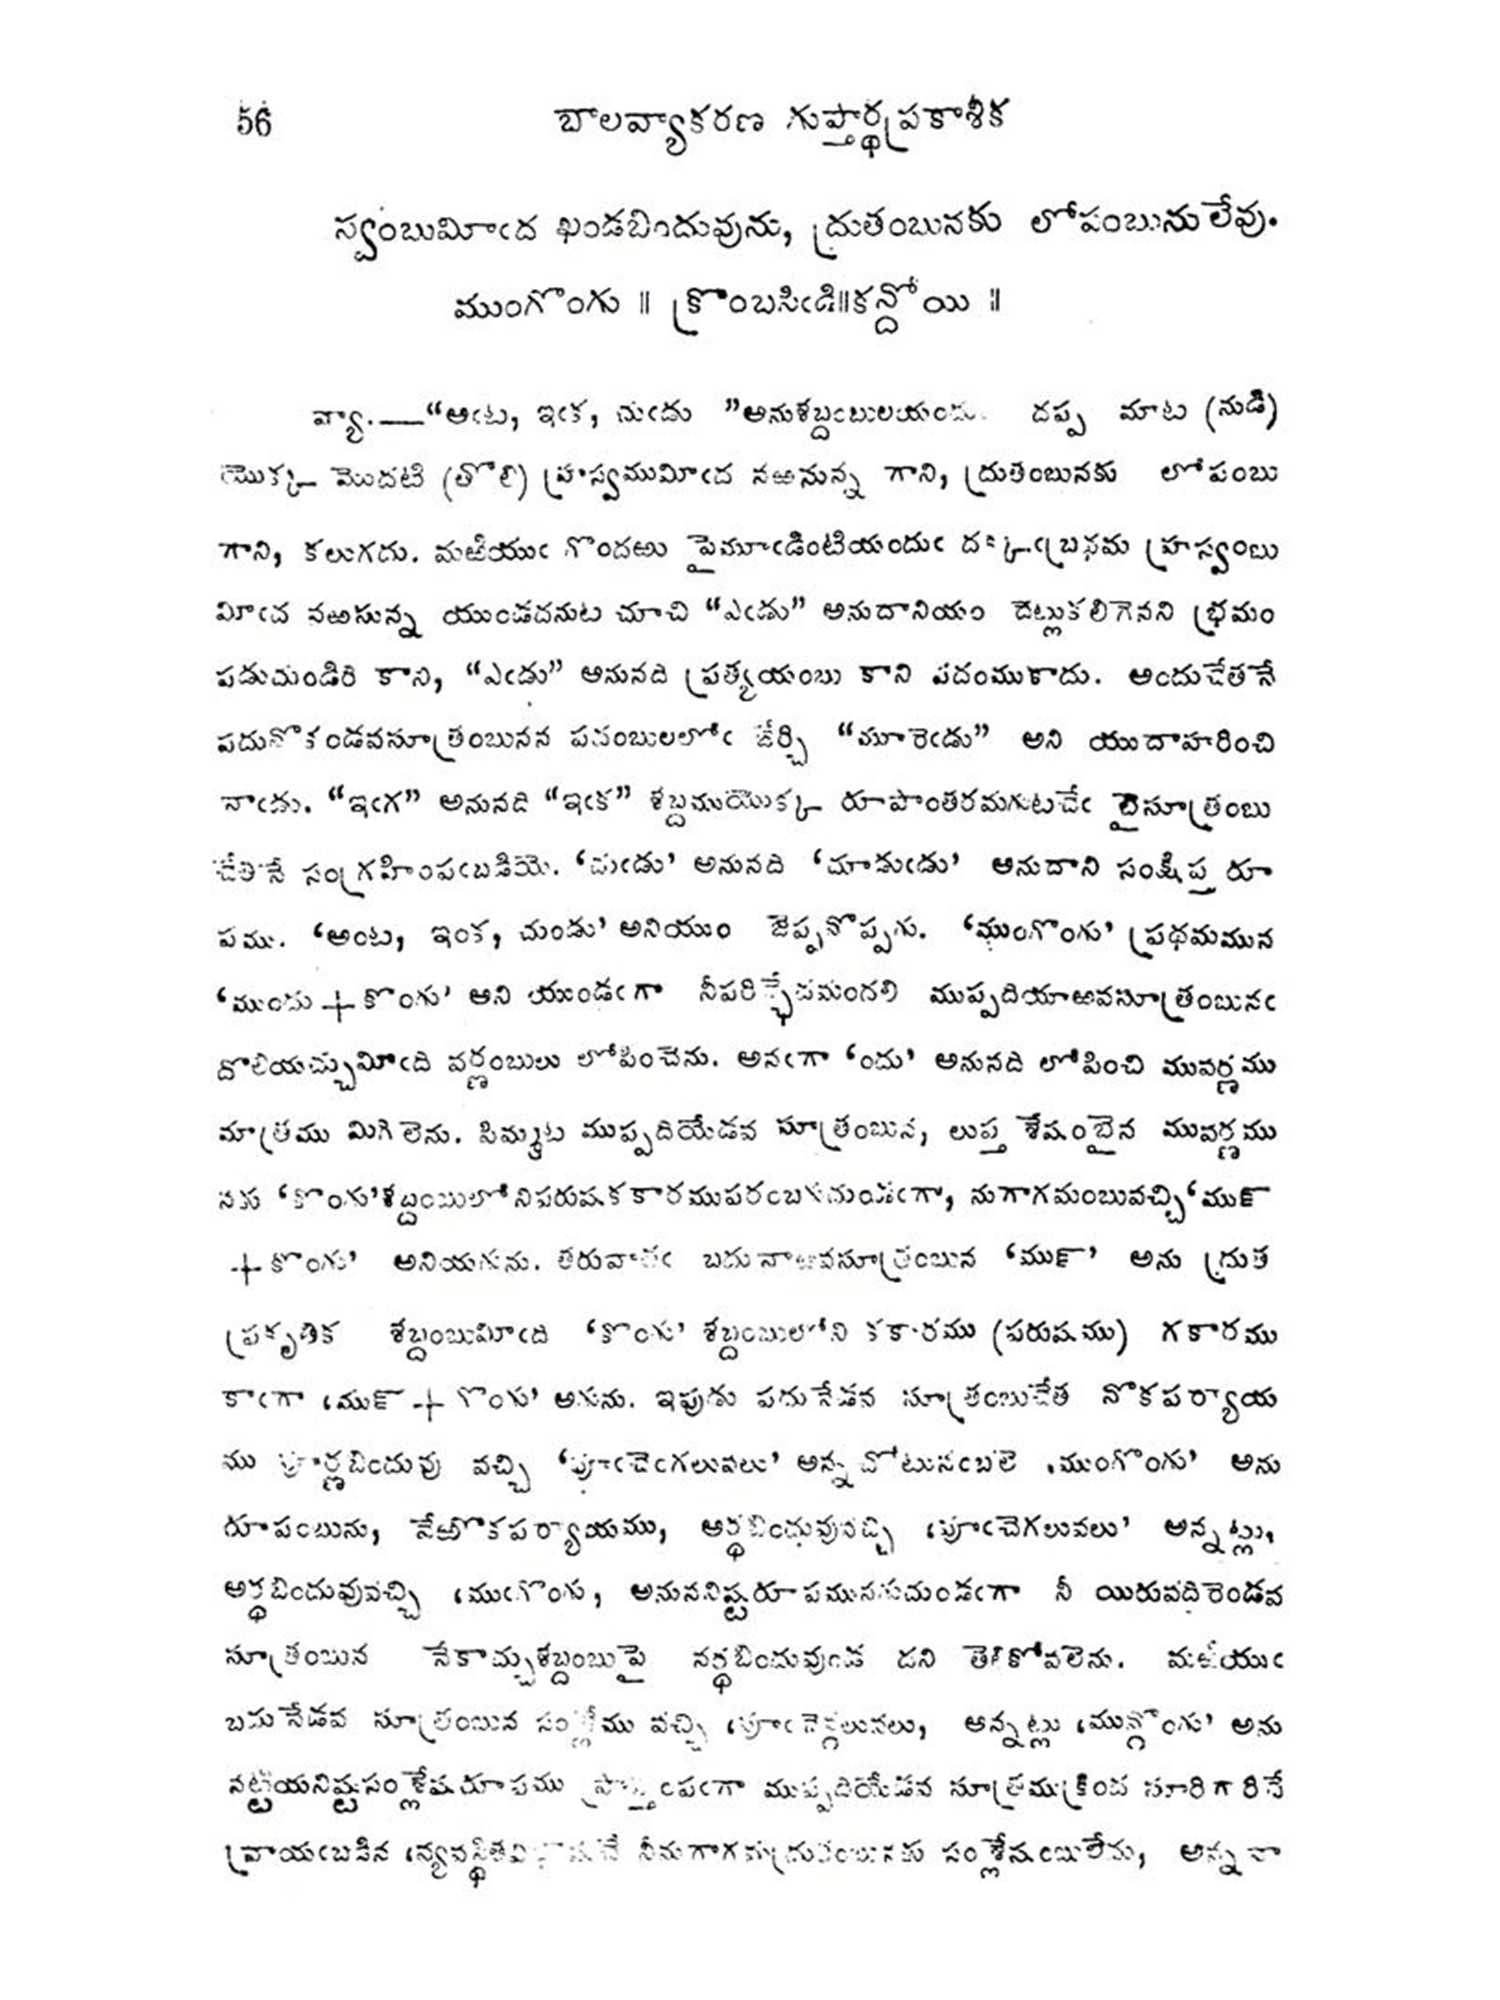 56 బాలవ్యాకరణ గుప్తార్థప్రకాశిక
స్వంబుమీఁద ఖండబిందువును, ద్రుతంబునకు లోపంబును లేవు.
ముంగొంగు ॥ క్రొంబసిఁడి॥కన్దోయి ॥
వ్యా.—“అఁట, ఇఁక, చుఁడు ”అనుశబ్దంబులయందుఁ దప్ప మాట (నుడి)
యొక్క మొదటి (తొలి) హ్రస్వముమీఁద నఱసున్న గాని, ద్రుతంబునకు లోపంబు
గాని, కలుగదు. మఱియుఁ గొందఱు పైమూఁడింటియందుఁ దక్కఁ బ్రథమ హ్రస్వంబు
మీఁద నఱసున్న యుండదనుట చూచి “ఎఁడు” అనుదానియం దెట్లుకలిగెనని భ్రమం
పడుచుండిరి కాని, “ఎఁడు” అనునది ప్రత్యయంబు కాని పదంముకాదు. అందుచేతనే
పదునొకండవసూత్రంబునన పదంబులలోఁ జేర్చి “మూరెఁడు” అని యుదాహరించి
నాఁడు. “ఇఁగ” అనునది “ఇఁక” శబ్దముయొక్క రూపాంతరమగుటచేఁ బైసూత్రంబు
చేతనే సంగ్రహింపఁబడియె. ‘చుఁడు’ అనునది ‘చూడుఁడు’ అనుదాని సంక్షిప్త రూ
పము. ‘అంట, ఇంక, చుండు’ అనియుం జెప్పనొప్పగు. ‘ముంగొంగు’ ప్రథమమున
‘ముందు + కొంగు’ అని యుండఁగా నీపరిచ్ఛేదమందలి ముప్పదియాఱవసూత్రంబునఁ
దొలియచ్చుమీఁది వర్ణంబులు లోపించెను. అనఁగా ‘ందు’ అనునది లోపించి మువర్ణము
మాత్రము మిగిలెను. పిమ్మట ముప్పదియేడవ సూత్రంబున, లుప్త శేషంబైన మువర్ణము
నకు ‘కొంగు’శబ్దంబులోనిపరుషకకారముపరంబగుచుండఁగా, నుగాగమంబువచ్చి‘మున్
+ కొంగు’ అనియగును. తరువాతఁ బదునాఱవసూత్రంబున ‘మున్’ అను ద్రుత
ప్రకృతిక శబ్దంబుమీఁది ‘కొంగు’ శబ్దంబులోని కకారము (పరుషము) గకారము
కాఁగా ‘మున్ + గొంగు’ అగును. ఇపుడు పదునేడవ సూత్రంబుచేత నొకపర్యాయ
ము పూర్ణబిందువు వచ్చి ‘పూఁచెంగలువలు’ అన్న చోటునంబలె ‘ముంగొంగు’ అను
రూపంబును, వేఱొకపర్యాయము, అర్థబిందువువచ్చి ‘పూఁచెగలువలు’ అన్నట్లు,
అర్థబిందువువచ్చి ‘ముఁగొంగు, అనుననిష్టరూపమునగుచుండఁగా నీ యిరువదిరెండవ
సూత్రంబున నేకాచ్చుశబ్దంబుపై నర్థబిందువుండ దని తెలికోవలెను. మఱియుఁ
బదునేడవ సూత్రంబున సంశ్లేషము వచ్చి ‘పూఁ అన్నట్లు ‘మున్గొంగు’ అను
నట్టియనిష్టసంశ్లేషరూపము ప్రాప్తింపఁగా ముప్పదియేడవ సూత్రముక్రింద సూరిగారిచే
వ్రాయఁబడిన నీనుగాగమద్రుతంబునకు సంశ్లేషంబులేదు, అన్న వా